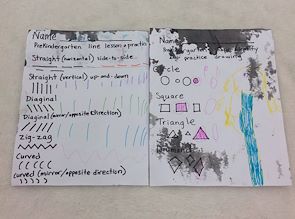 Name
Prekindergarten line lesson
Straight (horizontal) side-to-side
Straight (vertical) up-and-down
Diaginal
Diaginal (mirror/opposite direction)
Zig-zag
Curved
Curved (mirror/opposite direction)
Name
practice drawing
Circle
Square
Triangle